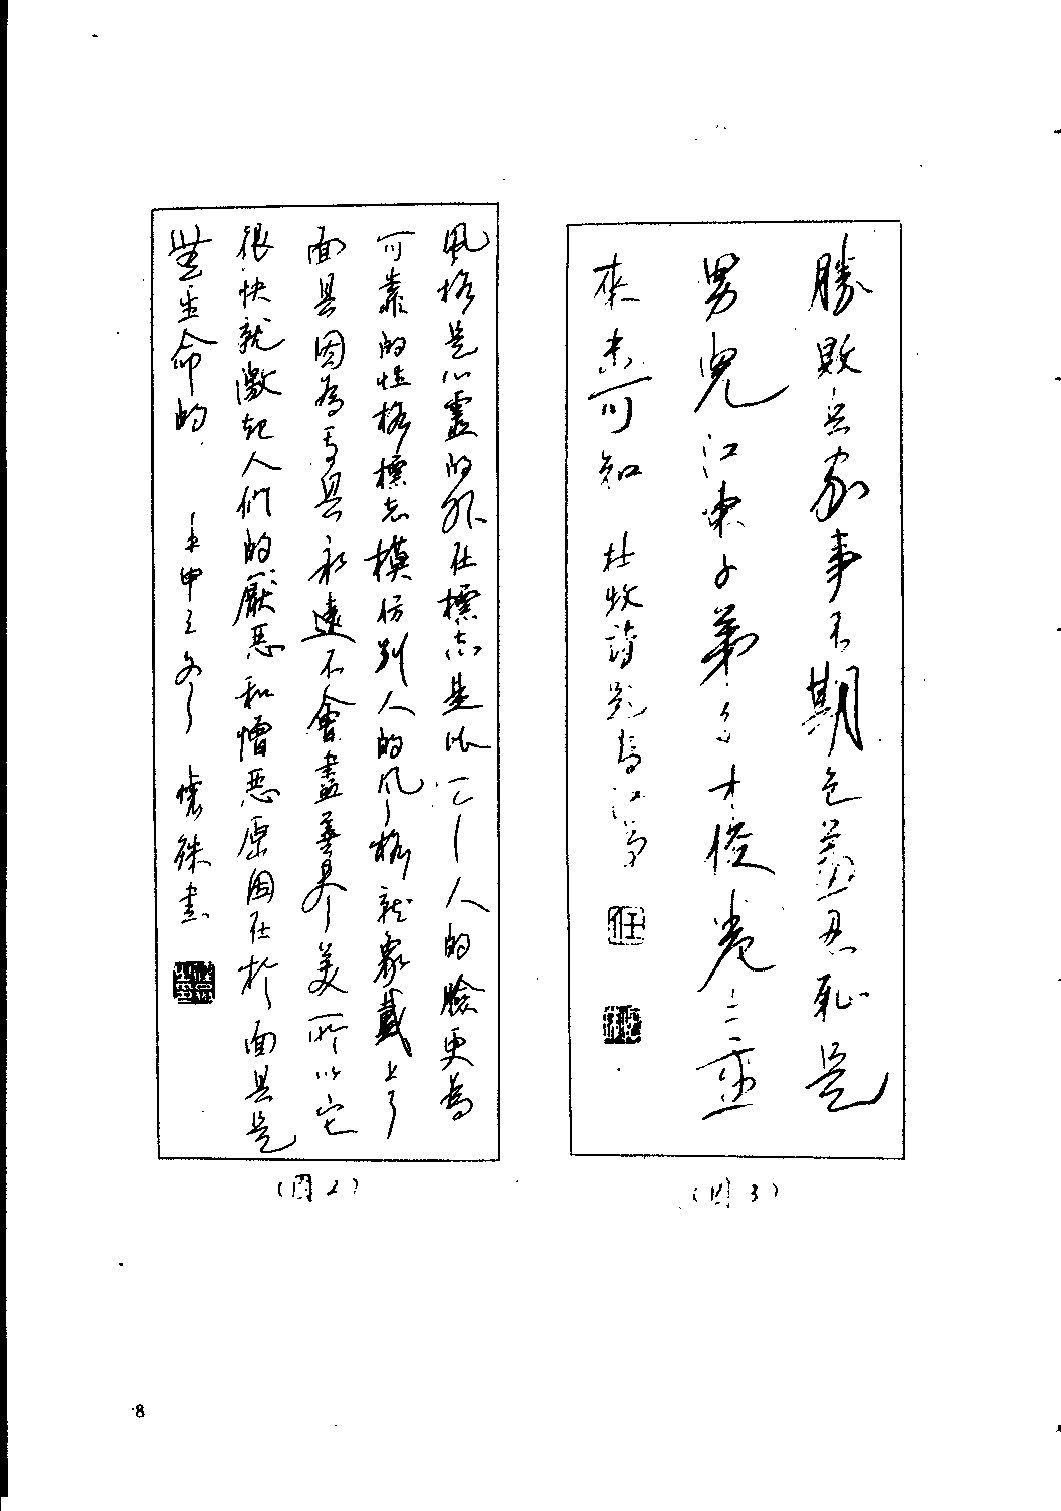 勝敗兵家事不期包羞忍恥是
男兒江東子弟多才俊卷土重
來未可知 杜牧詩題烏江亭
(图3)
風格是心靈的外在標志是比一个人的臉更為
可靠的性格標志模仿別人的风格就象戴上了
面具因為面具永遠不會盡善尽美所以它
很快就激起人們的厭惡和憎惡原因在於面具是
無生命的 壬申之冬 懷珠書
(图2)
8